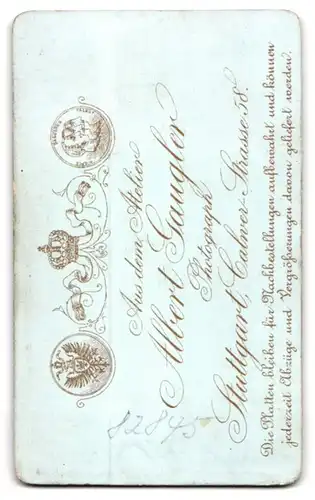 Aus dem Atelier
Albert Gaugler
Photograph
Stuttgart, Calwer-Strasse 58.
Die Platten bleiben für Nachbestellungen aufbewahrt und können
jederzeit Abzüge und Vergrößerungen davon geliefert werden.
82875